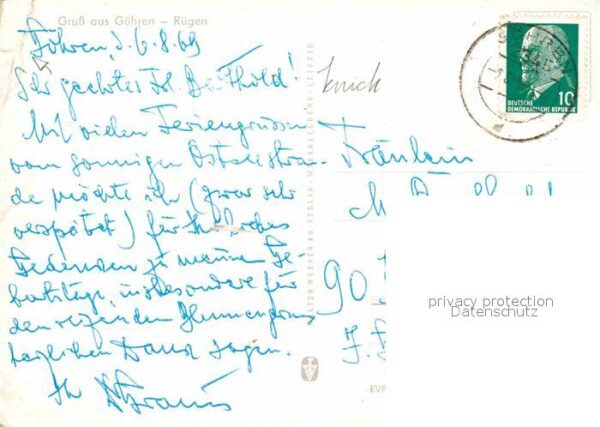 Gruß aus Göhren – Rügen
Göhren, d. 6.8.69
Sehr geehrtes Frl. Barthold!
Mit vielen Feriengrüssen
vom sonnigen Ostseestran-
de möchte ich (zwar sehr
verspätet) für Ihr liebes
Gedenken zu meinem Ge-
burtstage, insbesondere für
den reizenden Blumengruss
herzlichen Dank sagen.
Ihr
knick
Fräulein
90
DEUTSCHE
DEMOKRATISCHE REPUBLIK
10
privacy protection
Datenschutz
EVP